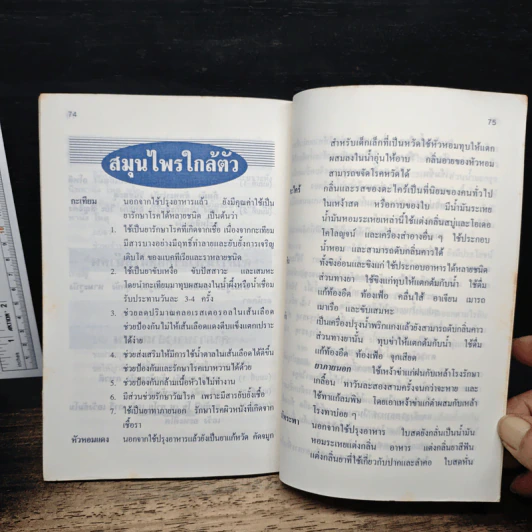 74
สมุนไพรใกล้ตัว
กะเทียม นอกจากใช้ปรุงอาหารแล้ว ยังมีคุณค่าใช้เป็น
ยารักษาโรคได้หลายชนิด เป็นต้นว่า
1. ใช้เป็นยารักษาโรคที่เกิดจากเชื้อ เนื่องจากกะเทียม
มีสารบางอย่างมีฤทธิ์ทำลายและยับยั้งการเจริญ
เติบโต ของแบคทีเรียและราหลายชนิด
2. ใช้เป็นยาขับเหงื่อ ขับปัสสาวะ และเสมหะ
โดยนำกะเทียมมาทุบผสมลงในน้ำผึ้งหรือน้ำเชื่อม
รับประทานวันละ 3-4 ครั้ง
3. ช่วยลดปริมาณคลอเรสเตอรอลในเส้นเลือด
ช่วยป้องกันไม่ให้เส้นเลือดแดงตีบแข็งแตกเปราะ
ได้ง่าย
4. ช่วยส่งเสริมให้มีการใช้น้ำตาลในเส้นเลือดได้ดีขึ้น
ช่วยป้องกันและรักษาโรคเบาหวานได้ด้วย
5. ช่วยป้องกันกล้ามเนื้อหัวใจไม่ทำงาน
6. มีส่วนช่วยรักษาวัณโรค เพราะมีสารยับยั้งเชื้อ
7. ใช้เป็นยาทาภายนอกแก้ รักษาโรคผิวหนังที่เกิดจาก
เชื้อรา
หัวหอมแดง นอกจากใช้ปรุงอาหารแล้วยังเป็นยาแก้หวัด คัดจมูก
75
สำหรับเด็กเล็กที่เป็นหวัดใช้หัวหอมทุบให้แตก
ผสมลงในน้ำอุ่นให้อาบ กลิ่นอายของหัวหอม
สามารถขจัดโรคหวัดได้
กลิ่นและรสของตะไคร้เป็นที่นิยมของคนทั่วไป
ในเหง้าสด หรือกาบของใบ มีน้ำมันระเหย
น้ำมันหอมระเหยเหล่านี้ใช้แต่งกลิ่นสบู่และโอเดอ
โคโลญจน์ และเครื่องสำอางอื่น ๆ ใช้ประกอบ
น้ำหอม และสามารถดับกลิ่นคาวได้
ทั้งขิงอ่อนและขิงแก่ ใช้ประกอบอาหารได้หลายชนิด
ส่วนทางยา ใช้ขิงแก่ทุบให้แตกต้มกับน้ำ ใช้ดื่ม
แก้ท้องอืด ท้องเฟ้อ คลื่นไส้ อาเจียน เมารถ
เมาเรือ และขับเสมหะ
เป็นเครื่องปรุงน้ำพริกแกงแล้วยังสามารถดับกลิ่นคาว
ส่วนทางยานั้น ทุบข่าให้แตกต้มกับน้ำ ใช้ดื่ม
แก้ท้องอืด ท้องเฟ้อ จุกเสียด
ยาภายนอก ใช้เหง้าข่าแก่ฝนกับเหล้าโรงรักษา
เกลื้อน ทาวันละสองสามครั้งจนกว่าจะหาย และ
ใช้ทาแก้ลมพิษ โดยเอาเหง้าข่าแก่ตำผสมกับเหล้า
โรงทาบ่อย ๆ
นอกจากใช้ปรุงอาหาร ใบสดยังกลั่นเป็นน้ำมัน
หอมระเหยแต่งกลิ่น อาหาร แต่งกลิ่นยาสีฟัน
แต่งกลิ่นยาที่ใช้เกี่ยวกับปากและลำคอ ใบสดหั่น